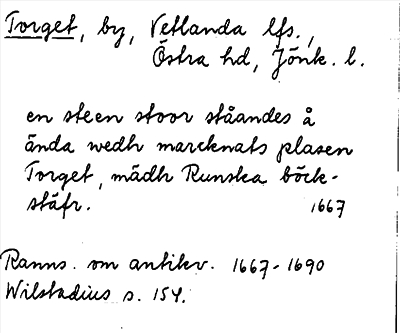 Torget, by, Vetlanda lfs.,
Östra hd, Jönk. l.
en steen stoor ståandes å
ända wedh marcknats plasen
Torget, mädh Runska böck-
stäfr. 1667
Ranns. om antikv. 1667-1690
Wilstadius s. 154.